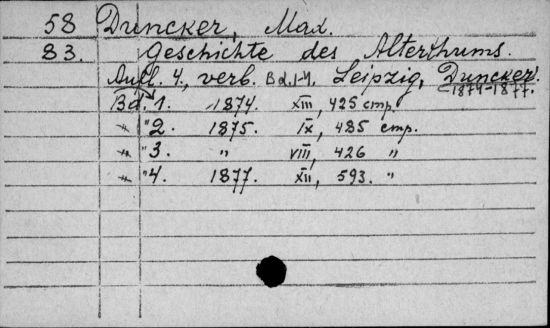 58 Duncker, Max.
83. Geschichte des Alterthums.
Aufl. 4., verb. Bd. 1-4. Leipzig, Duncker.
1874-1877.
Bd. 1. 1874. XIII, 425 стр.
" 2. 1875. IX, 485 стр.
" 3. " VIII, 426 "
" 4. 1877. XII, 593. "